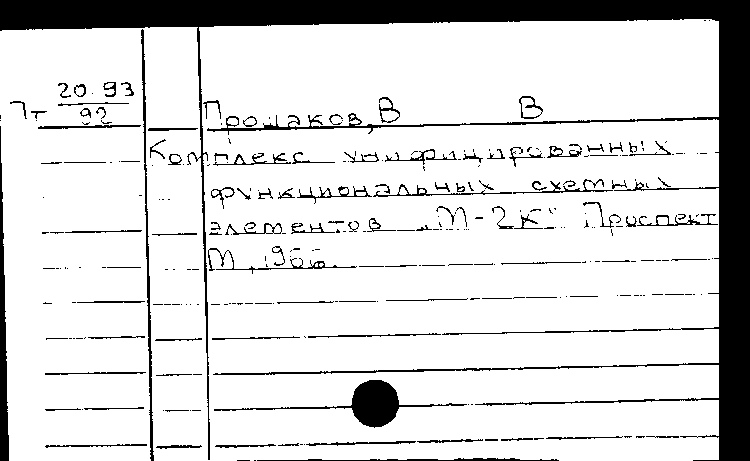 20.93
Пт 92
Промаков, В В
Комплекс унифицированных
функциональных схемных
элементов "М-2К" Проспект
М, 1966.